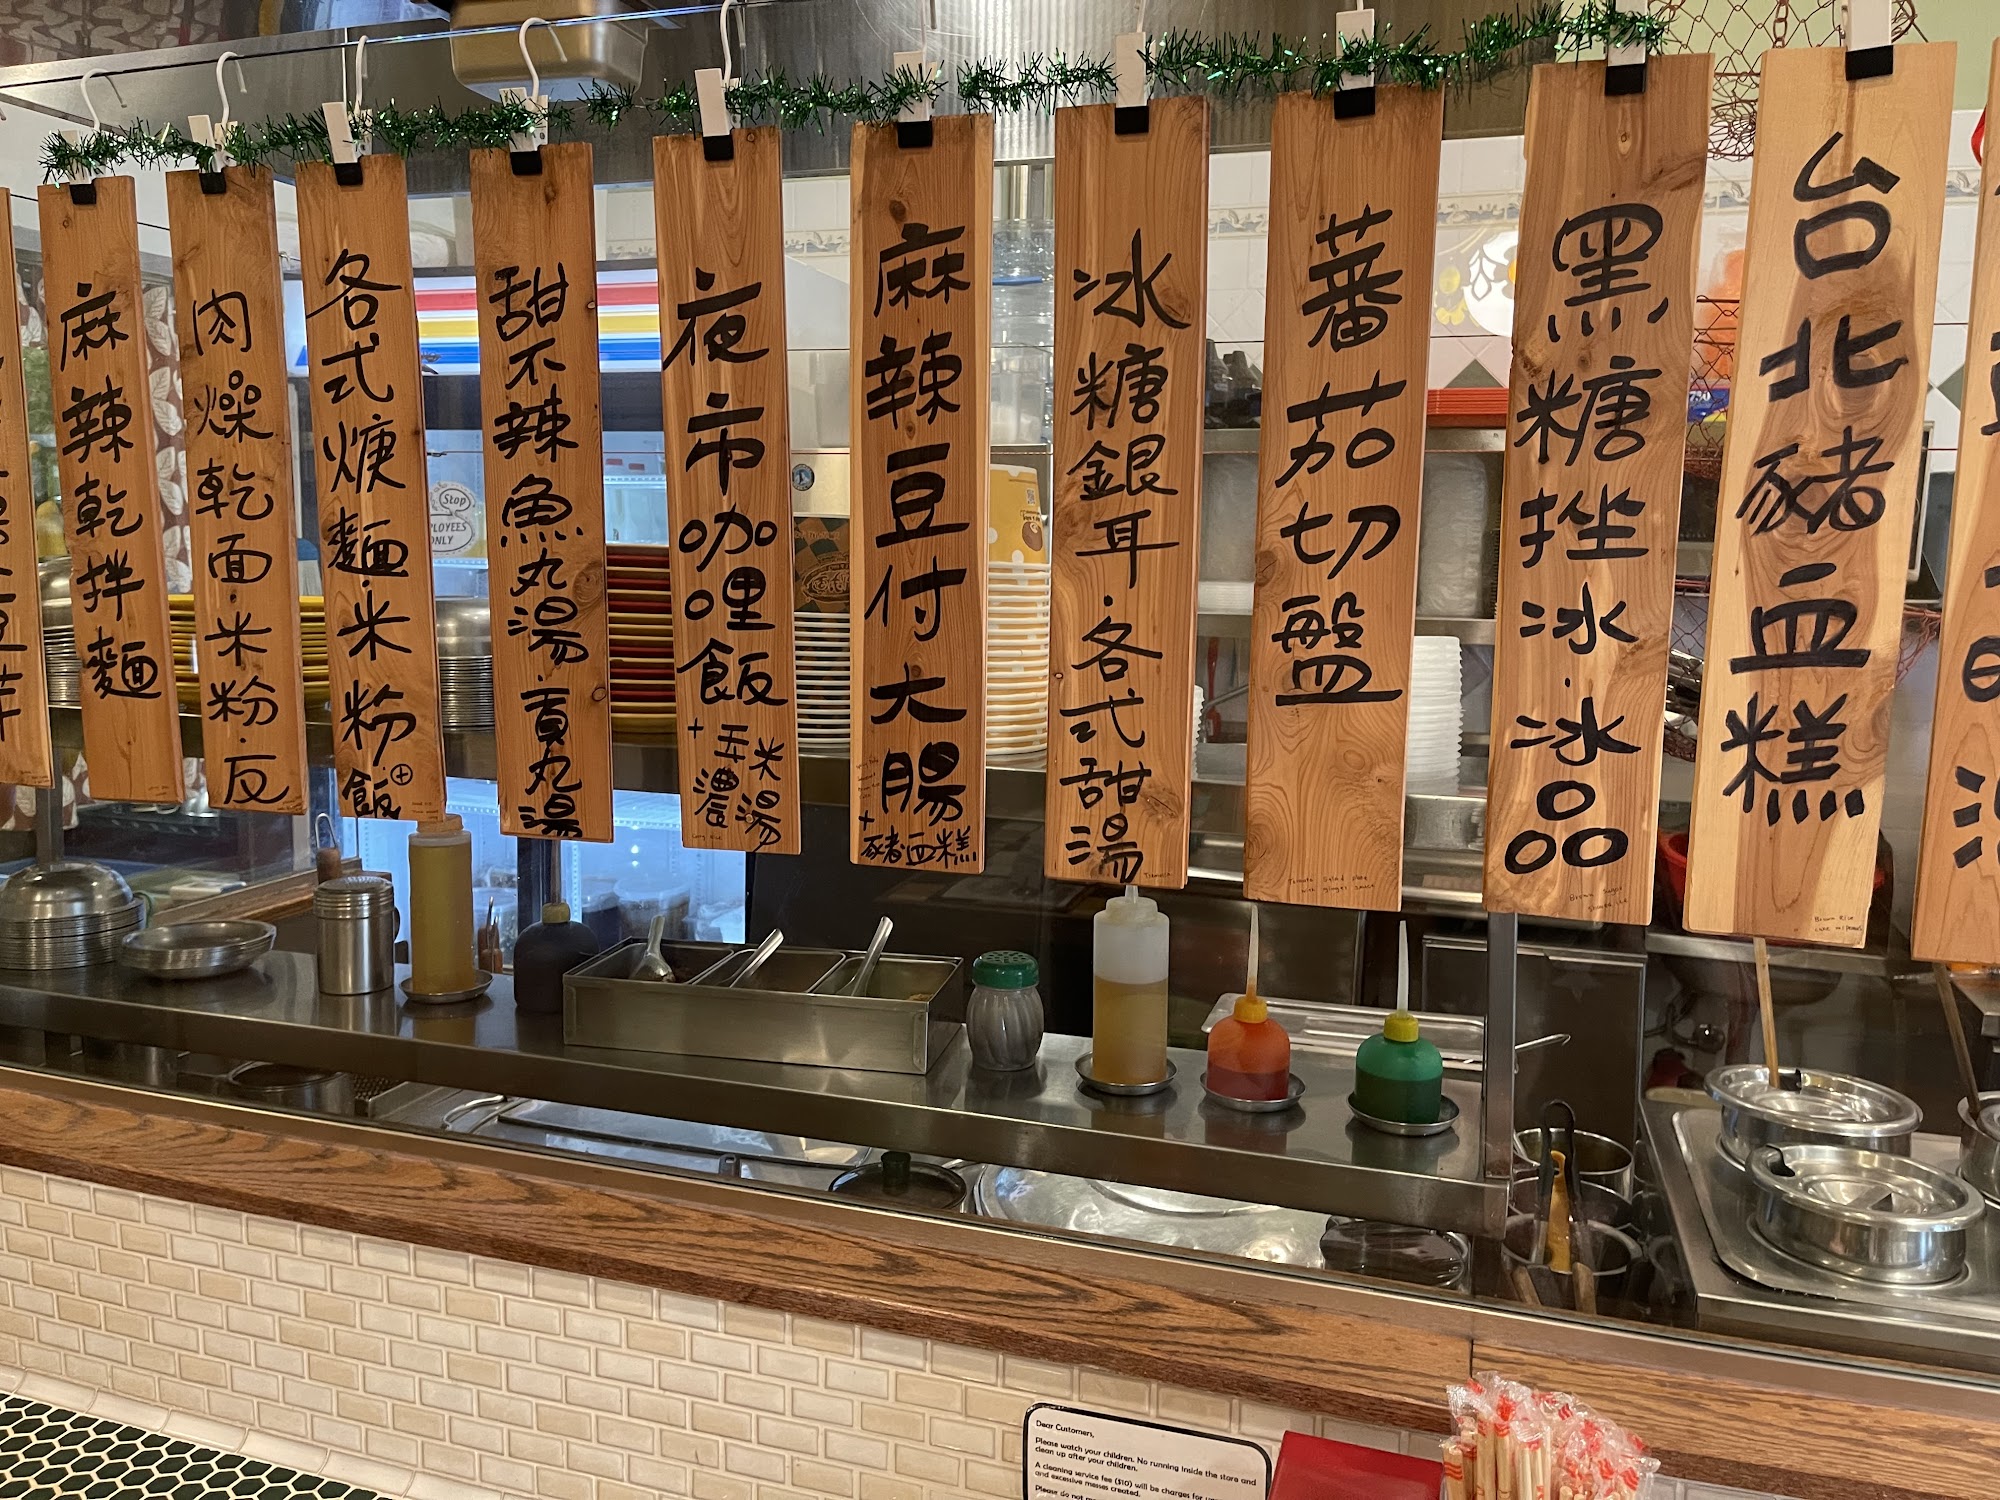 麻辣乾拌麵
肉燥乾面·米粉·反
各式焿麵·米粉
飯⊕
甜不辣魚丸湯·貢丸湯
夜市咖哩飯
+玉米
濃湯
Curry Rice
麻辣豆付大腸
+豬血糕
冰糖銀耳·各式甜湯
Tremella
蕃茄切盤
Tomato Salad Plate
with ginger sauce
黑糖挫冰·冰品
Brown Sugar
Shaved Ice
台北豬血糕
Brown Rice
Cake w/Peanuts
Stop
EMPLOYEES
ONLY
730
Dear Customers,
Please watch your children. No running inside the store and
clean up after your children.
A cleaning service fee ($10) will be charges for
and excessive messes created.
Please do not